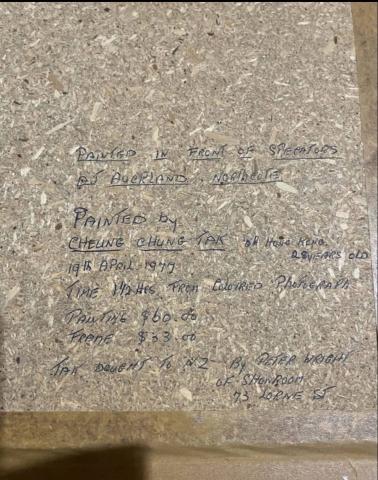 PAINTED IN FRONT OF SPECATORS
AT AUCKLAND. NORTHCOTE
PAINTED by
CHEUNG CHUNG TAK OF HONG KONG.
28 YEARS OLD
19th APRIL 1977
TIME 1½ HRS FROM COLOURED PHOTOGRAPH
PAINTING $60.00
FRAME $33.00
TAK BOUGHT TO NZ BY PETER WRIGHT
OF SHOWROOM
73 LORNE ST